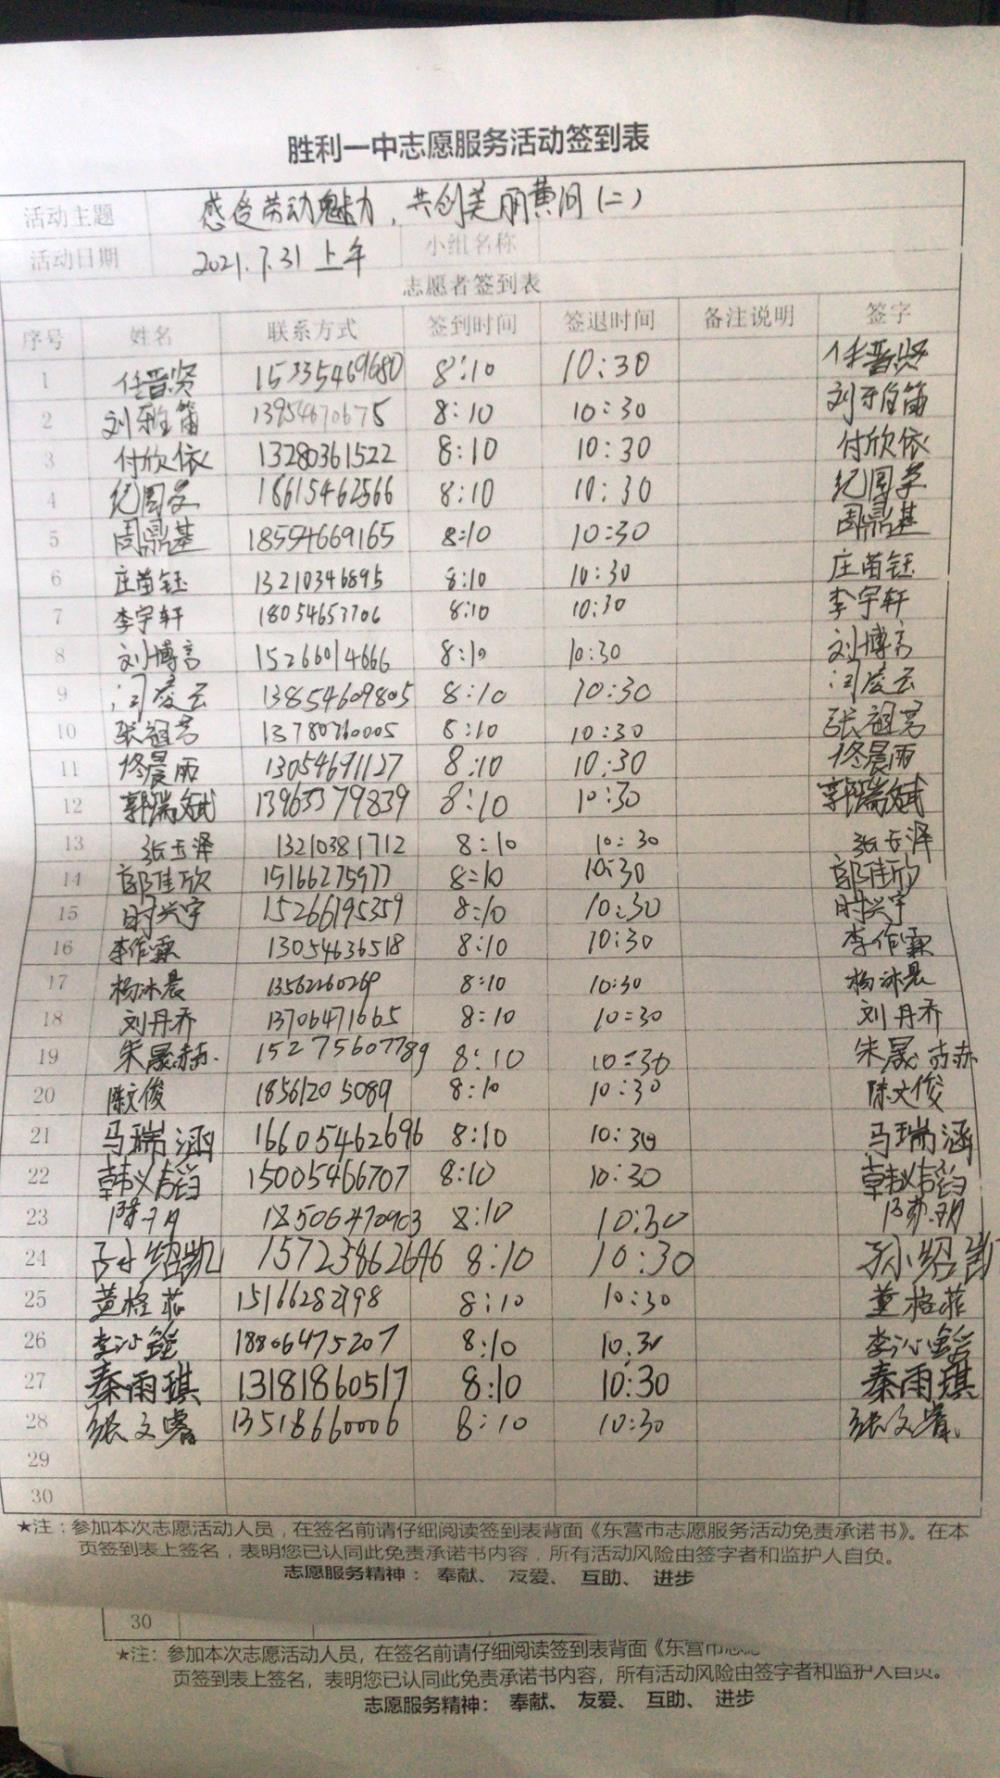 胜利一中志愿服务活动签到表
活动主题 感受劳动魅力，共创美丽黄河(二)
活动日期 2021.7.31 上午 小组名称
志愿者签到表
序号 姓名 联系方式 签到时间 签退时间 备注说明 签字
1 任晋贤 15335469680 8:10 10:30 任晋贤
2 刘雅笛 13954670675 8:10 10:30 刘雅笛
3 付欣依 13280361522 8:10 10:30 付欣依
4 纪周孚 18615462566 8:10 10:30 纪周孚
5 周鼎基 18554669165 8:10 10:30 周鼎基
6 庄苗钰 13210346895 8:10 10:30 庄苗钰
7 李宇轩 18054653706 8:10 10:30 李宇轩
8 刘博言 15266014666 8:10 10:30 刘博言
9 闫凌云 13854609805 8:10 10:30 闫凌云
10 张祖茗 13780760005 8:10 10:30 张祖茗
11 佟晨雨 13054691127 8:10 10:30 佟晨雨
12 郭瑞斌 13963379839 8:10 10:30 郭瑞斌
13 张玉泽 13210381712 8:10 10:30 张玉泽
14 郭佳欣 15166275977 8:10 10:30 郭佳欣
15 时兴宇 15266195359 8:10 10:30 时兴宇
16 李作霖 13054636518 8:10 10:30 李作霖
17 杨冰晨 13562260269 8:10 10:30 杨冰晨
18 刘丹乔 13706471665 8:10 10:30 刘丹乔
19 朱晟赫 15275607789 8:10 10:30 朱晟赫
20 陈文俊 18561205089 8:10 10:30 陈文俊
21 马瑞涵 16605462696 8:10 10:30 马瑞涵
22 韩义韬 15005466707 8:10 10:30 韩义韬
23 18506470903 8:10 10:30
24 孙绍凯 15723862696 8:10 10:30 孙绍凯
25 黄格菲 15166282798 8:10 10:30 黄格菲
26 李沁 18806475207 8:10 10:30 李沁
27 秦雨琪 13181860517 8:10 10:30 秦雨琪
28 张文睿 13518660006 8:10 10:30 张文睿
29
30
★注：参加本次志愿活动人员，在签名前请仔细阅读签到表背面《东营市志愿服务活动免责承诺书》。在本
页签到表上签名，表明您已认同此免责承诺书内容，所有活动风险由签字者和监护人自负。
志愿服务精神： 奉献、 友爱、 互助、 进步
30
★注：参加本次志愿活动人员，在签名前请仔细阅读签到表背面《东营市志愿
页签到表上签名，表明您已认同此免责承诺书内容，所有活动风险由签字者和监护人自负。
志愿服务精神： 奉献、 友爱、 互助、 进步